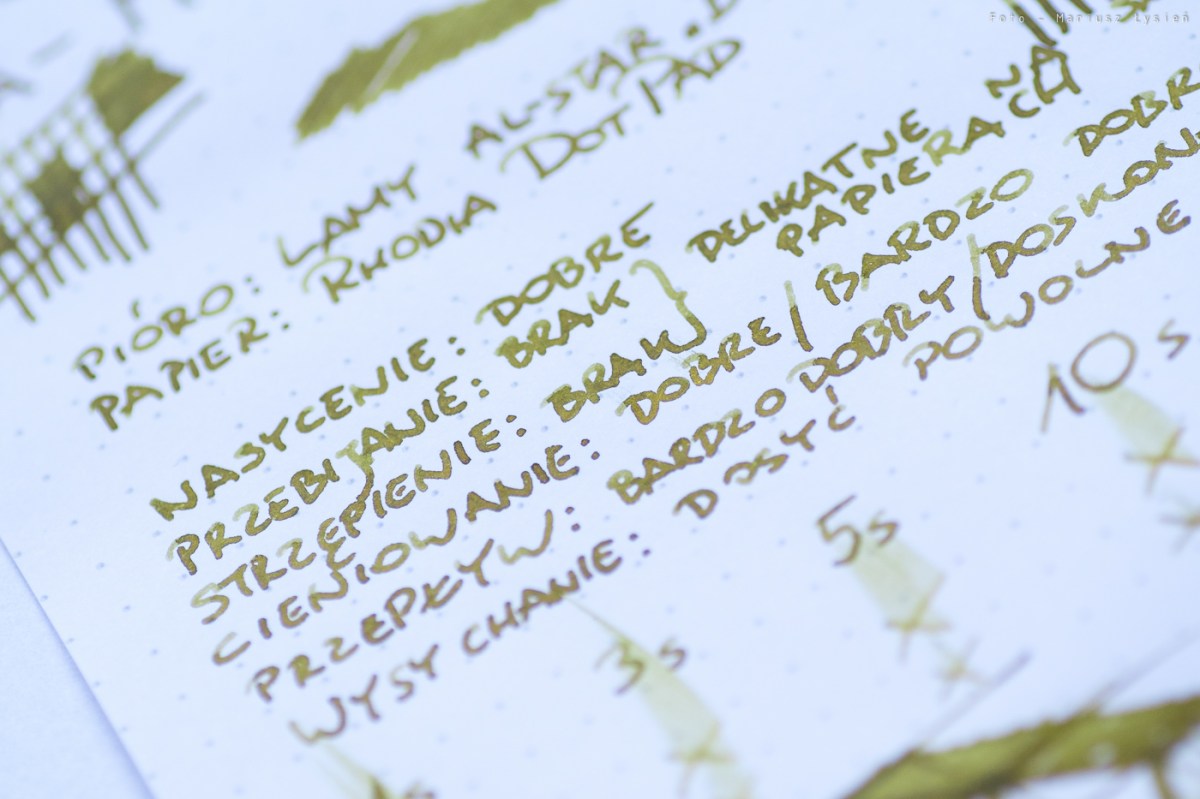 Foto - Mariusz Łysień
PIÓRO: LAMY AL-STAR
PAPIER: RHODIA DOTPAD
NASYCENIE: DOBRE
PRZEBIJANIE: BRAK } DELIKATNE NA
STRZĘPIENIE: BRAK PAPIERACH
CIENIOWANIE: DOBRE / BARDZO
PRZEPŁYW: BARDZO DOBRY /
WYSYCHANIE: DOSYĆ POWOLNE
3s 5s 10s